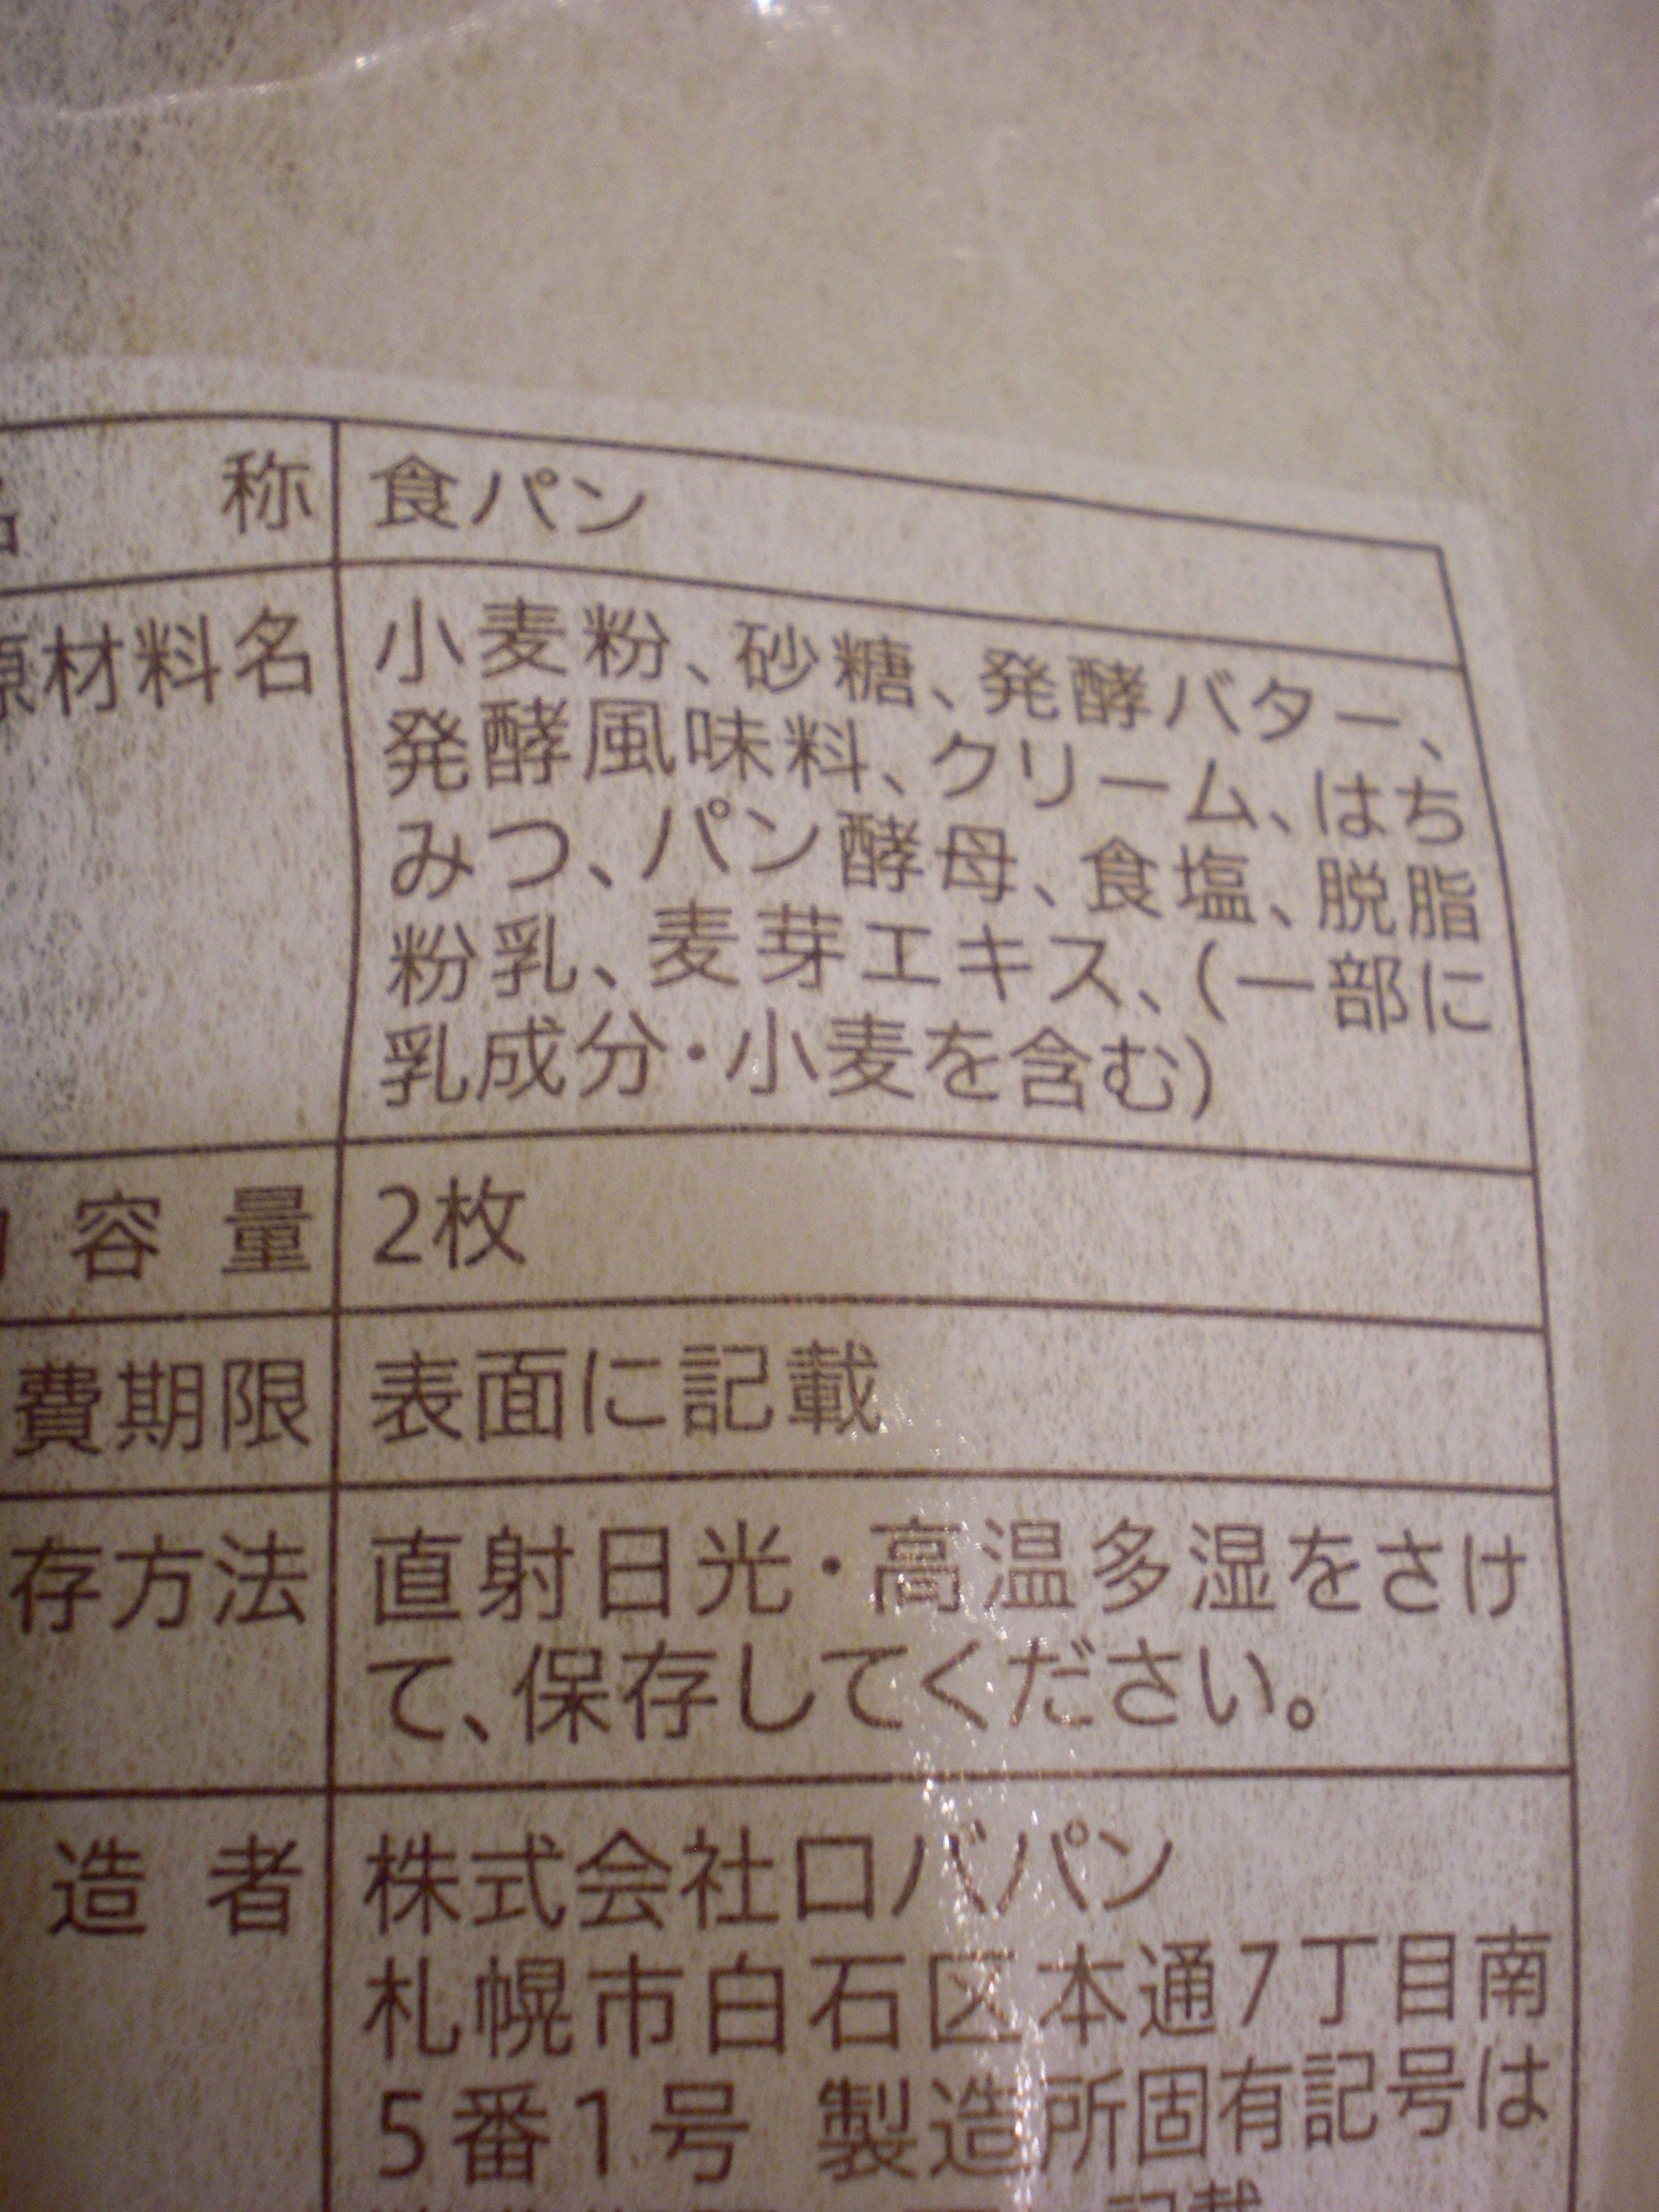 称 食パン
材料名 小麦粉、砂糖、発酵バター、
発酵風味料、クリーム、はち
みつ、パン酵母、食塩、脱脂
粉乳、麦芽エキス、(一部に
乳成分・小麦を含む)
容量 2枚
費期限 表面に記載
存方法 直射日光・高温多湿をさけ
て、保存してください。
造者 株式会社ロバパン
札幌市白石区本通7丁目南
5番1号 製造所固有記号は
記載